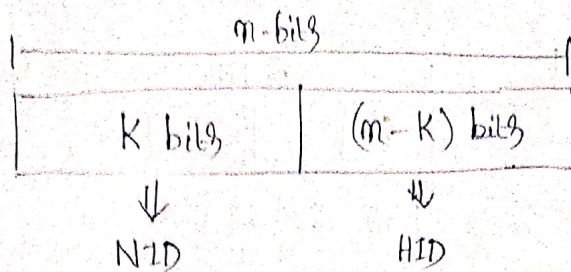 n-bits
K bits (n-K) bits
NID HID